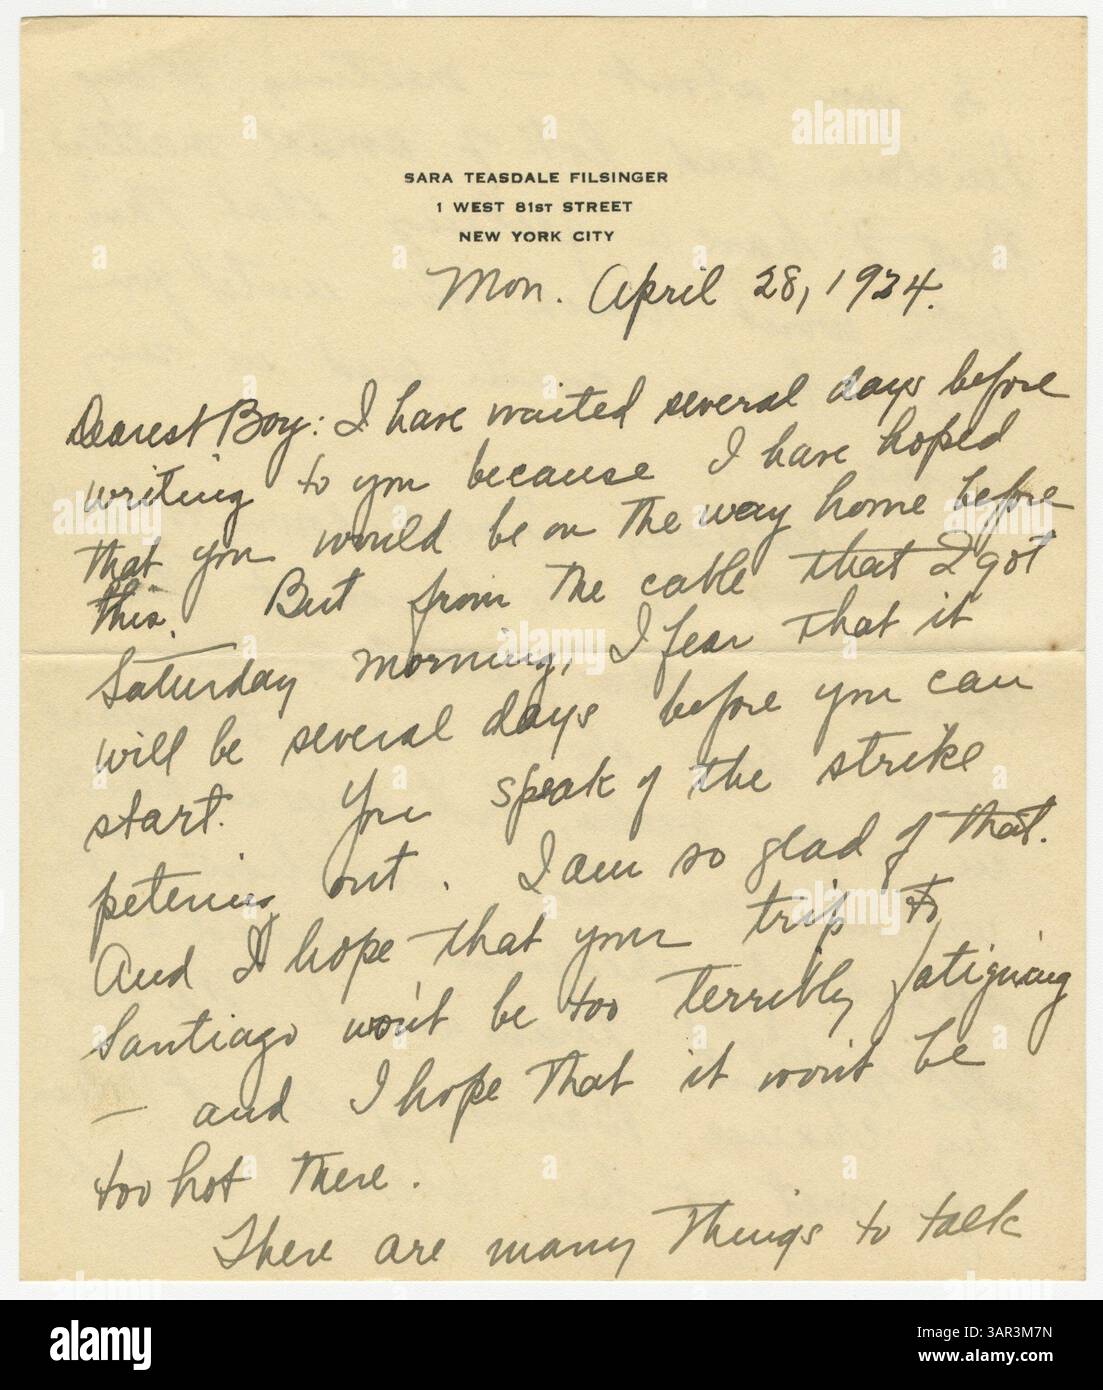 SARA TEASDALE FILSINGER
1 WEST 81ST STREET
NEW YORK CITY
Mon. April 28, 1924.
Dearest Boy: I have waited several days before
writing to you because I have hoped
that you would be on the way home before
this. But from the cable that I got
Saturday morning, I fear that it
will be several days before you can
start. You speak of the strike
petering out. I am so glad of that.
And I hope that your trip to
Santiago won't be too terribly fatiguing
— and I hope that it won't be
too hot there.
There are many things to talk
alamy
Image ID: 3AR3M7N
www.alamy.com